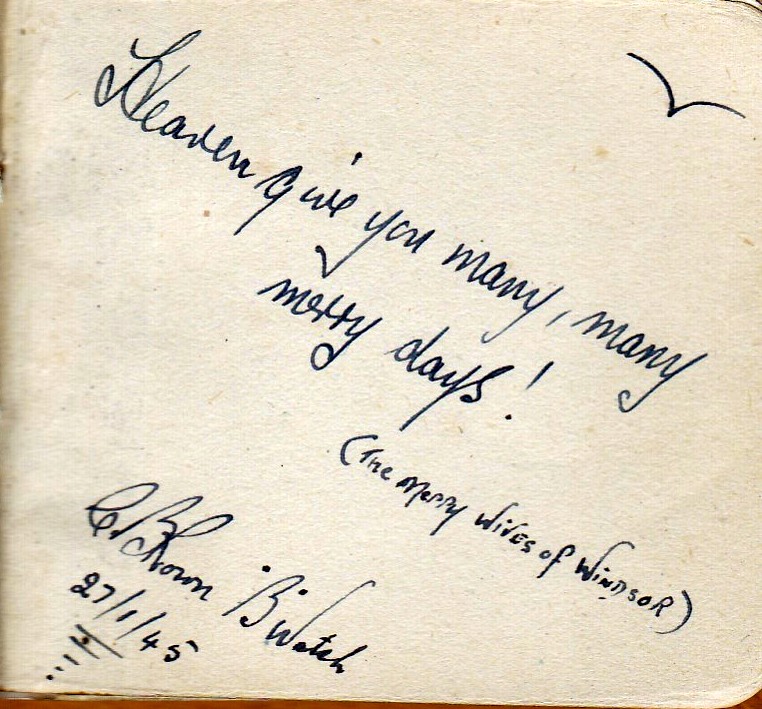 Heaven give you many, many
merry days!
(The Merry Wives of Windsor)
C. Brown "B" Watch
27/1/45